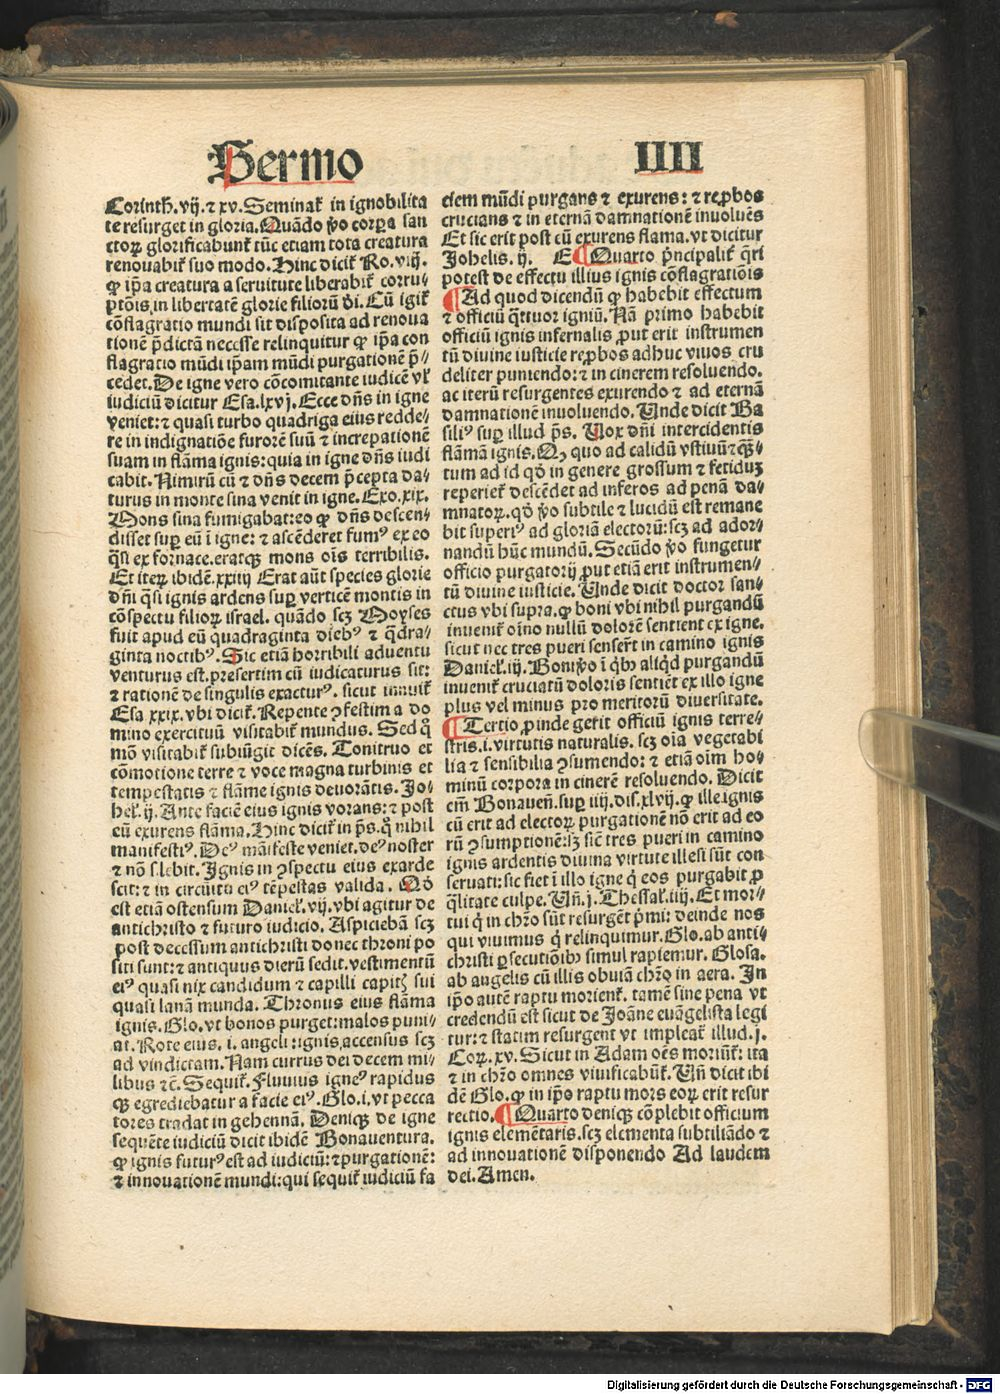 Sermo IIII
Corinth. vij. ⁊ xv. Seminat̄ in ignobilita
te resurget in gloria. Quādo ṽo corpꝑa san
ctoꝝ glorificabunt̄ tūc etiam tota creatura
renouabit̄ suo modo. Hinc dicit̄ Ro. viij.
ꝙ ip̄a creatura a seruitute liberabit̄ corru⸗
ptōis, in libertatē glorie filiorū dı̄. Cū igit̄
cōflagratio mundi sit disposita ad renoua
tionē p̄dictā necesse relinquitur ꝙ ip̄a con
flagratio mūdi ip̄am mūdi purgationē p̄⸗
cedet. De igne vero cōcomitante iudicē vł
iudiciū dicitur Esa. lxvj. Ecce dn̄s in igne
veniet: ⁊ quasi turbo quadriga eius redde⸗
re in indignatiōe furorē suū ⁊ increpationē
suam in flāma ignis: quia in igne dn̄s iudi
cabit. Nimirū cū ⁊ dn̄s decem p̄cepta da⸗
turus in monte sina venit in igne. Exo. xix.
Mons sina fumigabat: eo ꝙ dn̄s descen⸗
disset suꝑ eū ı̄ igne: ⁊ ascēderet fumꝰ ex eo
q̄si ex fornace. eratqꝫ mons oı̄s terribilis.
Et iteꝝ ibidē. xxiiij Erat aūt species glorie
dn̄i q̄si ignis ardens suꝑ verticē montis in
cōspectu filioꝝ israel. quādo scꝫ Moyses
fuit apud eū quadraginta diebꝰ ⁊ q̄dra⸗
ginta noctibꝰ. Sic etiā horribili aduentu
venturus est. presertim cū iudicaturus sit:
⁊ rationē de singulis exacturꝰ. sicut innuit̄
Esa xxix. vbi dicit̄. Repente ꝯfestim a do
mino exercituū visitabit̄ mundus. Sed q̊
mō visitabit̄ subiūgit dicēs. Tonitruo et
cōmotione terre ⁊ voce magna turbinis et
tempestatis ⁊ flāme ignis deuorātis. Jo⸗
hel̄. ij. Ante faciē eius ignis vorans: ⁊ post
eū exurens flāma. Hinc dicit̄ in p̄s. q̊ nihil
manifestiꝰ. Deꝰ māifeste veniet. deꝰ noster
⁊ nō silebit. Ignis in ꝯspectu eius exarde
scit: ⁊ in circūitu eiꝰ tēpestas valida. Qō
est etiā ostensum Daniel̄. vij. vbi agitur de
antichristo ⁊ futuro iudicio. Aspiciebā scꝫ
post decessum antichristi donec throni po
siti sunt: ⁊ antiquus dierū sedit. vestimentū
eiꝰ quasi nix candidum ⁊ capilli capitꝭ sui
quasi lanā munda. Thronus eius flāma
ignis. Glo. vt bonos purget: malos puni⸗
at. Rote eius. i. angeli: ignis accensus scꝫ
ad vindictam. Nam currus dei decem mi⸗
libus ⁊c̄. Sequit̄. Fluuius igneꝰ rapidus
qꝫ egrediebatur a facie eiꝰ. Glo. i. vt pecca
tores tradat in gehennā. Deniqꝫ de igne
sequēte iudiciū dicit ibidē Bonauentura.
ꝙ ignis futurꝰ est ad iudiciū: ⁊ purgationē:
⁊ innouationē mundi: qui sequit̄ iudiciū fa
ciem mūdi purgans ⁊ exurens: ⁊ reꝓbos
crucians ⁊ in eternā damnationē inuoluēs
Et sic erit post cū exurens flama. vt dicitur
Johelis. ij. E ¶ Quarto p̄ncipalit̄ q̄ri
potest de effectu illius ignis cōflagratiōis
¶ Ad quod dicendū ꝙ habebit effectum
⁊ officiū q̄ttuor igniū. Nā primo habebit
officiū ignis infernalis ꝓut erit instrumen
tū diuine iusticie reꝓbos adhuc viuos cru
deliter puniendo: ⁊ in cinerem resoluendo.
ac iterū resurgentes exurendo ⁊ ad eternā
damnationē inuoluendo. Unde dicit Ba
siliꝰ suꝑ illud p̄s. Vox dn̄i intercidentis
flāmā ignis. Qꝫ quo ad calidū vstiuū ⁊ q̄⸗
tum ad id qō in genere grossum ⁊ fetidūꝫ
reperiet̄ descēdet ad inferos ad penā da⸗
mnatoꝝ. qō ṽo subtile ⁊ lucidū est remane
bit superiꝰ ad gloriā electorū: scꝫ ad ador⸗
nandū hūc mundū. Secūdo ṽo fungetur
officio purgatorij ꝓut etiā erit instrumen⸗
tū diuine iusticie. Unde dicit doctor san⸗
ctus vbi supra. ꝙ boni vbi nihil purgandū
inuenit̄ oı̄no nullū dolorē sentient ex igne.
sicut nec tres pueri senser̄t in camino ignis
Daniel̄. iij. Boni ṽo ı̄ qͥbꝰ aliqͥd purgandū
inuenit̄ cruciatū doloris sentiēt ex illo igne
plus vel minus pro meritorū diuersitate.
¶ Tertio ꝓinde gerit officiū ignis terre⸗
stris. i. virtutis naturalis. scꝫ oı̄a vegetabi
lia ⁊ sensibilia ꝯsumendo: ⁊ etiā oı̄m ho⸗
minū corpora in cinerē resoluendo. Dicit
em̄ Bonauen̄. suꝑ iiij. dis. xlvij. ꝙ ille ignis
cū erit ad electoꝝ purgationē nō erit ad eo
rū ꝯsumptionē: sꝫ sic̄ tres pueri in camino
ignis ardentis diuina virtute illesi sūt con
seruati: sic fiet ı̄ illo igne q̄ eos purgabit ꝓ
q̄litate culpe. Un̄. j. Thessal̄. iiij. Et mor⸗
tui qͥ in chr̄o sūt resurgēt p̄mi: deinde nos
qui viuimus qͥ relinquimur. Glo. ab anti⸗
christi ꝑsecutiōibꝰ simul rapiemur. Glosa.
ab angelis cū illis obuiā chr̄o in aera. In
ip̄o autē raptu morient̄. tamē sine pena vt
credendū est sicut de Joāne euāgelista legi
tur: ⁊ statim resurgent vt impleat̄ illud. j.
Coꝝ. xv. Sicut in Adam oēs moriūt̄: ita
⁊ in chr̄o omnes viuificabūt̄. Un̄ dicit ibi
dē Glo. ꝙ in ip̄o raptu mors eoꝝ erit resur
rectio. ¶ Quarto deniqꝫ cōplebit officium
ignis elemētaris. scꝫ elementa subtiliādo ⁊
ad innouationē disponendo Ad laudem
dei. Amen.
Digitalisierung gefördert durch die Deutsche Forschungsgemeinschaft - DFG